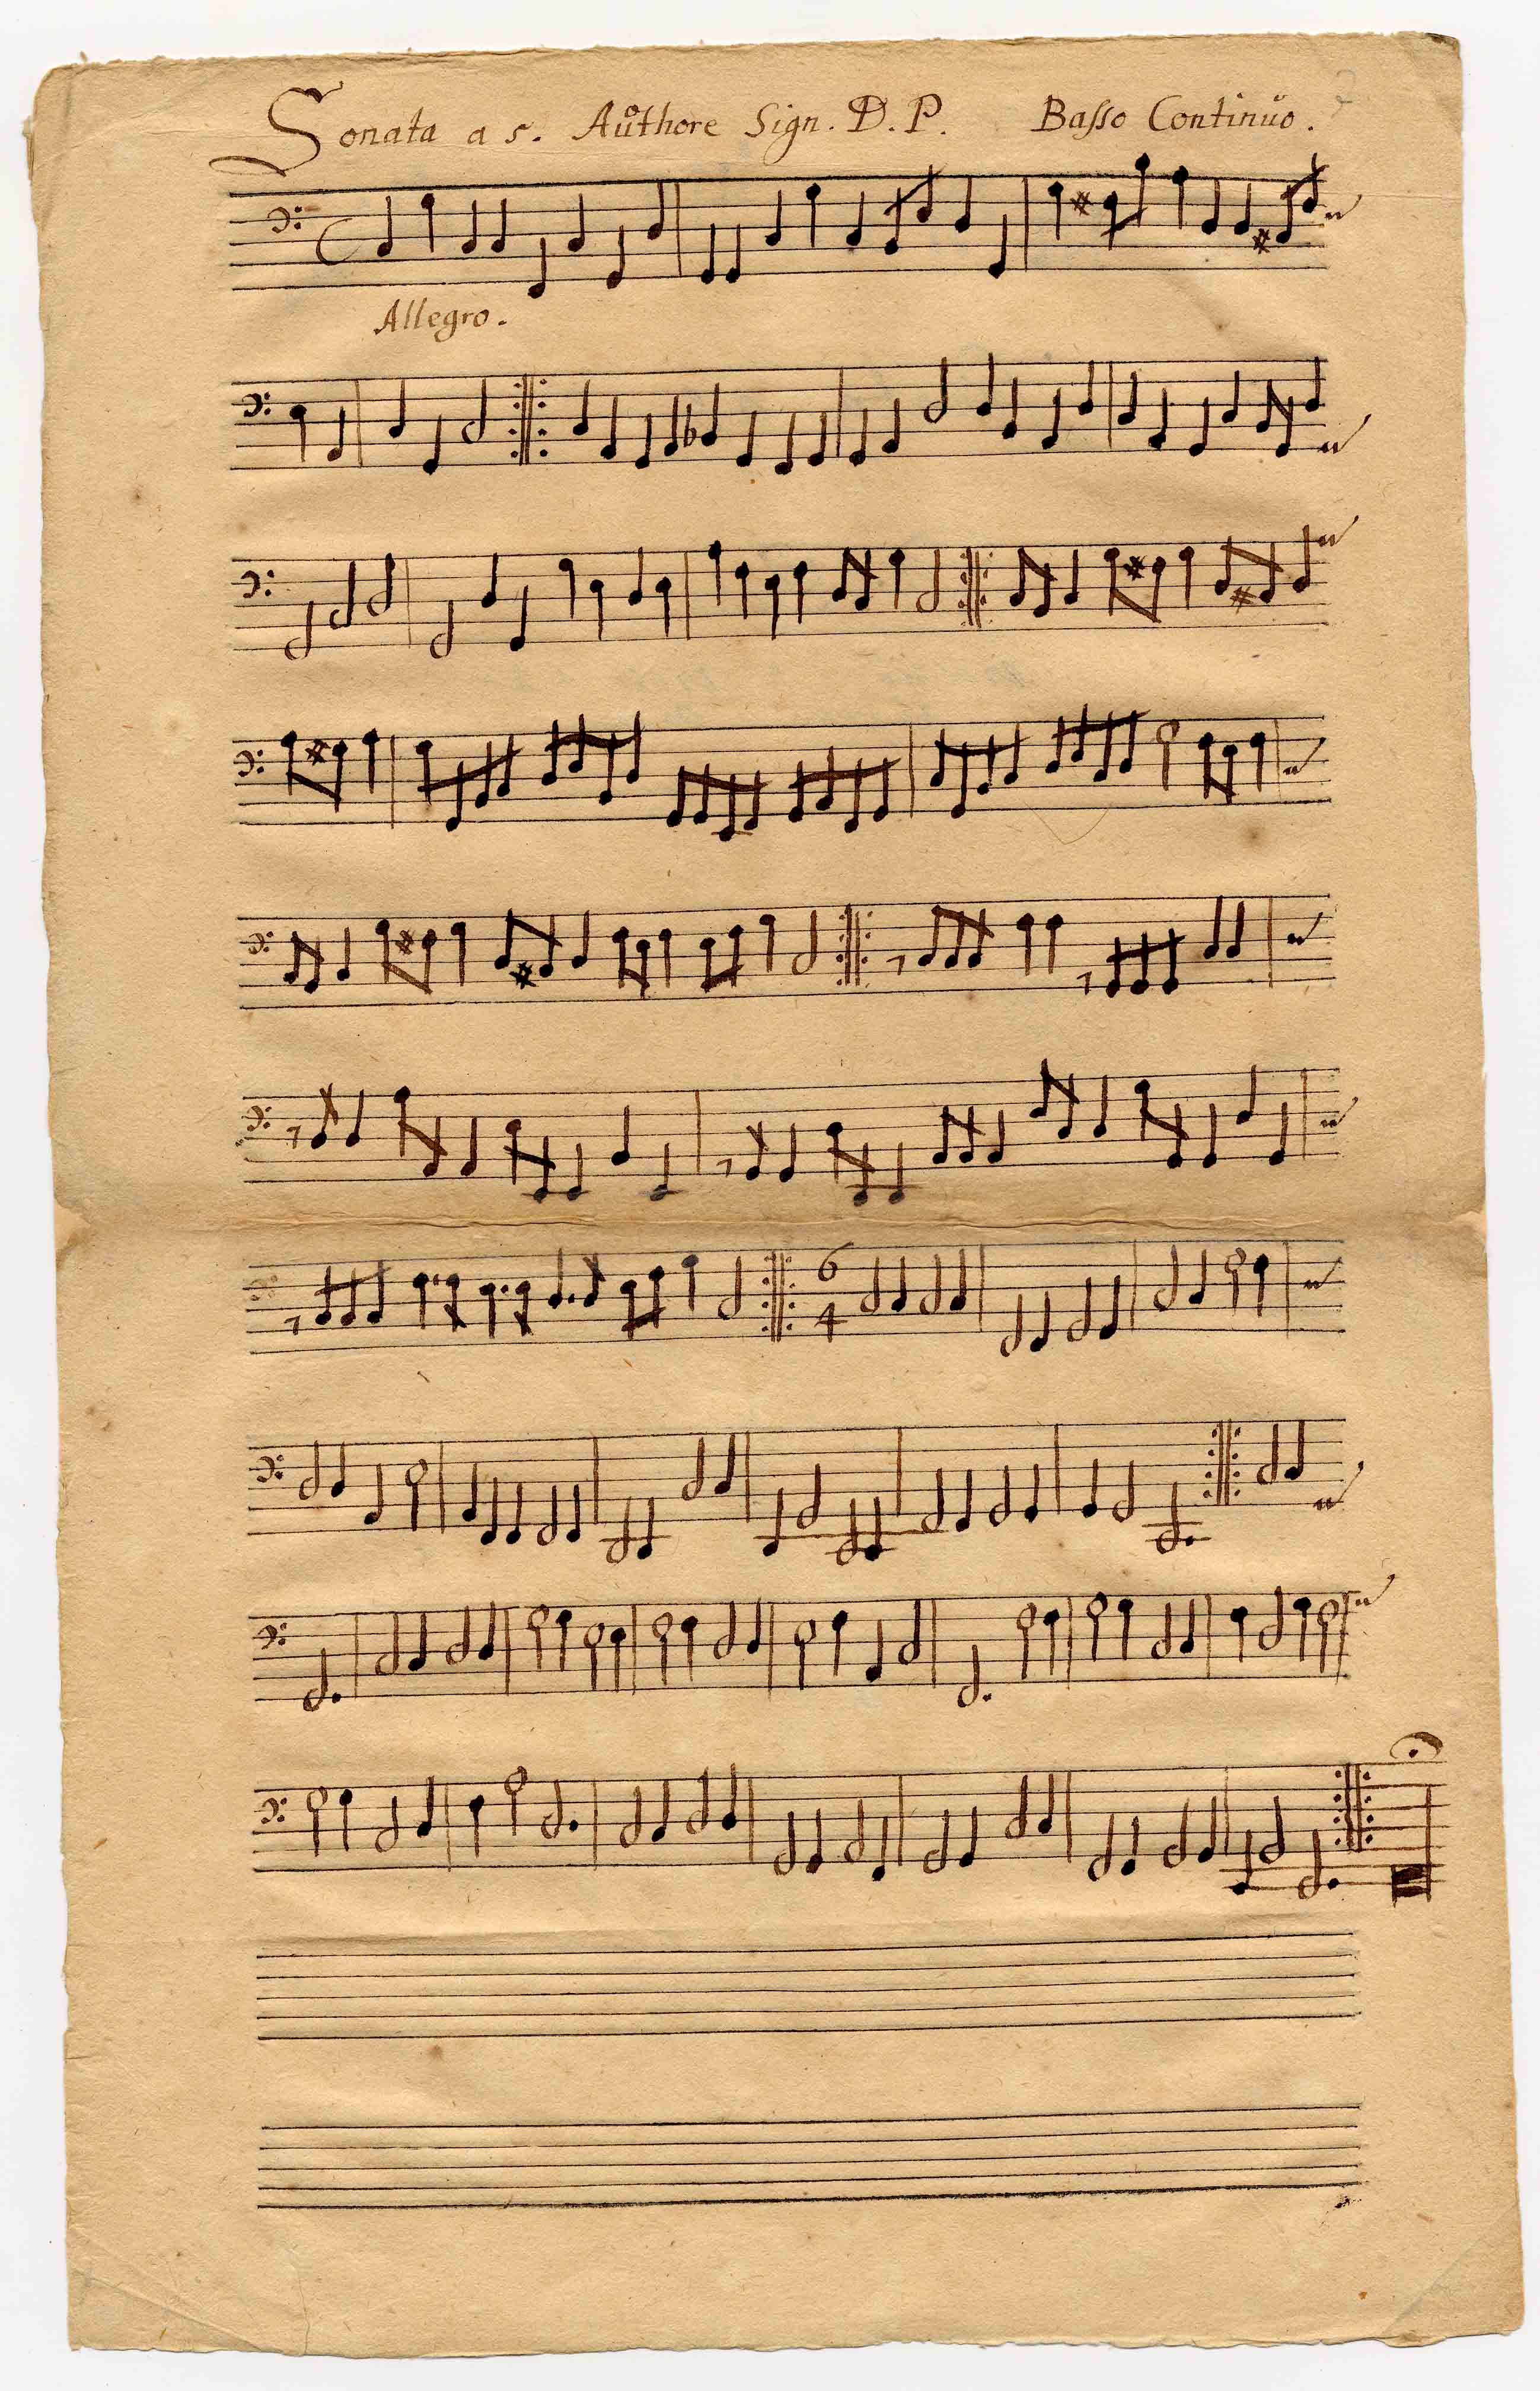 Sonata a 5. Aůthore Sign. D. P. Baſso Continŭo.
Allegro.
6
4